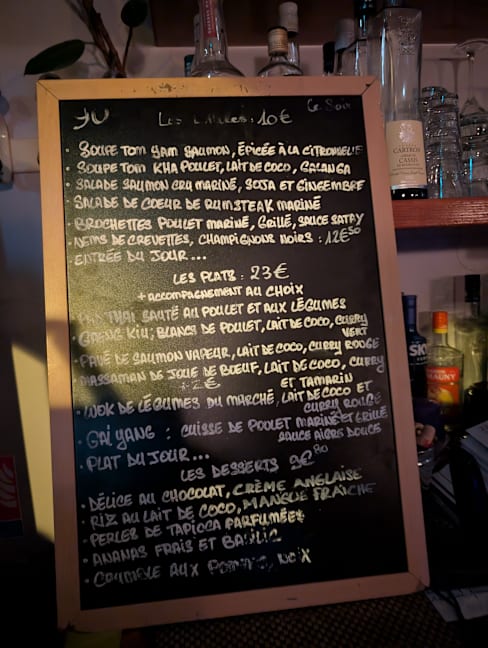 Le Soir
Les Entrées: 10€
• SOUPE TOM YAM SAUMON, ÉPICÉE À LA CITRONNELLE
• SOUPE TOM KHA POULET, LAIT DE COCO, GALANGA
• SALADE SAUMON CRU MARINÉ, SOJA ET GINGEMBRE
• SALADE DE COEUR DE RUMSTEAK MARINÉ
• BROCHETTES POULET MARINÉ, GRILLÉ, SAUCE SATAY
• NEMS DE CREVETTES, CHAMPIGNONS NOIRS : 12€50
• ENTRÉE DU JOUR...
LES PLATS : 23€
+ ACCOMPAGNEMENT AU CHOIX
THAI SAUTÉ AU POULET ET AUX LÉGUMES
• GAENG KIU; BLANCS DE POULET, LAIT DE COCO, CURRY
VERT
• PAVÉ DE SAUMON VAPEUR, LAIT DE COCO, CURRY ROUGE
• MASSAMAN DE JOUE DE BOEUF, LAIT DE COCO, CURRY
+2€ ET TAMARIN
• WOK DE LÉGUMES DU MARCHÉ, LAIT DE COCO ET
CURRY ROUGE
• GAÏ YANG : CUISSE DE POULET MARINÉ ET GRILLÉ
SAUCE AIGRE DOUCE
• PLAT DU JOUR...
LES DESSERTS 9€80
• DÉLICE AU CHOCOLAT, CRÈME ANGLAISE
• RIZ AU LAIT DE COCO, MANGUE FRAÎCHE
• PERLES DE TAPIOCA PARFUMÉES
• ANANAS FRAIS ET BASILIC
• CRUMBLE AUX NOIX
CARTRON
CASSIS
SKY